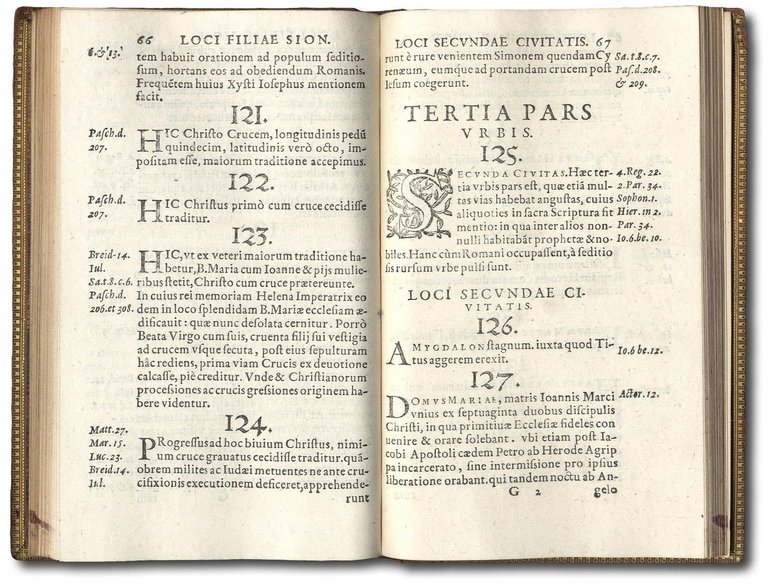 66 LOCI FILIAE SION.
6. & 13.
tem habuit orationem ad populum seditio-
sum, hortans eos ad obediendum Romanis.
Frequẽtem huius Xysti Iosephus mentionem
facit.
121.
Pasch.d.
207.
HIC Christo Crucem, longitudinis pedũ
quindecim, latitudinis verò octo, im-
positam esse, maiorum traditione accepimus.
122.
Pasch.d.
207.
HIC Christus primò cum cruce cecidisse
traditur.
123.
Breid.14.
Iul.
Sa.t.8.c.6.
Pasch.d.
206.et 308.
HIC, vt ex veteri maiorum traditione ha-
betur, B. Maria cum Ioanne & pijs mulie-
ribus stetit, Christo cum cruce prætereunte.
In cuius rei memoriam Helena Imperatrix eo
dem in loco splendidam B. Mariæ ecclesiam æ-
dificauit: quæ nunc desolata cernitur. Porrò
Beata Virgo cum suis, cruenta filij sui vestigia
ad crucem vsque secuta, post eius sepulturam
hâc rediens, prima viam Crucis ex deuotione
calcasse, piè creditur. Vnde & Christianorum
processiones ac crucis gressiones originem ha-
bere videntur.
124.
Matt.27.
Mar.15.
Luc.23.
Breid.14.
Iul.
PRogressus ad hoc biuium Christus, nimi-
um cruce grauatus cecidisse traditur. quã-
obrem milites ac Iudæi metuentes ne ante cru-
cifixionis executionem deficeret, apprehende-
runt
LOCI SECVNDAE CIVITATIS. 67
runt è rure venientem Simonem quendam Cy
renæum, eumque ad portandam crucem post
Iesum coëgerunt.
Sa.t.8.c.7.
Pas.d.208.
& 209.
TERTIA PARS
VRBIS.
125.
SECVNDA CIVITAS. Hæc ter-
tia vrbis pars est, quæ etiã mul-
tas vias habebat angustas, cuius
aliquoties in sacra Scriptura fit
mentio: in qua inter alios non-
nulli habitabãt prophetæ & no-
biles. Hanc cùm Romani occupassent, à seditio
sis rursum vrbe pulsi sunt.
4.Reg.22.
2.Par.34.
Sophon.1.
Hier.in 2.
Par.34.
Io.6.be.10.
LOCI SECVNDAE CI-
VITATIS.
126.
AMYGDALON stagnum. iuxta quod Ti-
tus aggerem erexit.
Io.6 be.12.
127.
DOMVS MARIAE, matris Ioannis Marci
vnius ex septuaginta duobus discipulis
Christi, in qua primitiuæ Ecclesiæ fideles con
uenire & orare solebant. vbi etiam post Ia-
cobi Apostoli cædem Petro ab Herode Agrip
pa incarcerato, sine intermissione pro ipsius
liberatione orabant. qui tandem noctu ab An-
Actor.12.
G 2 gelo